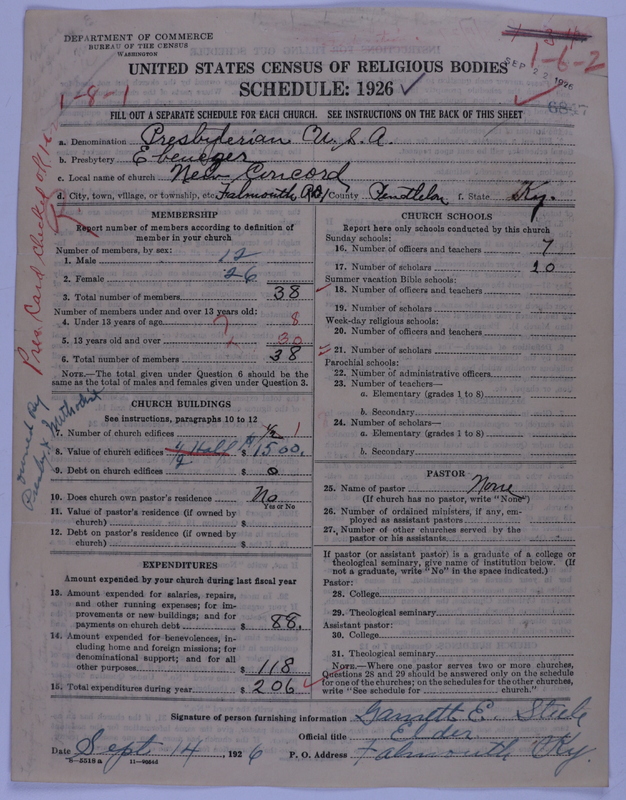 DEPARTMENT OF COMMERCE
BUREAU OF THE CENSUS
WASHINGTON
1-6-2
SEP 22 1926
UNITED STATES CENSUS OF RELIGIOUS BODIES
SCHEDULE: 1926 ✓
1-8-1
FILL OUT A SEPARATE SCHEDULE FOR EACH CHURCH. SEE INSTRUCTIONS ON THE BACK OF THIS SHEET
a. Denomination Presbyterian U.S.A.
b. Presbytery Ebenezer
c. Local name of church New Concord
d. City, town, village, or township, etc. Falmouth County Pendleton f. State Ky.
MEMBERSHIP
Report number of members according to definition of
member in your church
Number of members, by sex:
1. Male 12
2. Female 26
3. Total number of members 38
Number of members under and over 13 years old:
4. Under 13 years of age ? 8
5. 13 years old and over 30
6. Total number of members 38
NOTE.—The total given under Question 6 should be
same as the total of males and females given under Question 3.
CHURCH BUILDINGS
See instructions, paragraphs 10 to 12
7. Number of church edifices 1/2 1
8. Value of church edifices 1/2 $ 1500.
9. Debt on church edifices $ 0
10. Does church own pastor's residence No
Yes or No
11. Value of pastor's residence (if owned by
church) $
12. Debt on pastor's residence (if owned by
church) $
EXPENDITURES
Amount expended by your church during last fiscal year
13. Amount expended for salaries, repairs,
and other running expenses; for im-
provements or new buildings; and for
payments on church debt $ 88.
14. Amount expended for benevolences, in-
cluding home and foreign missions; for
denominational support; and for all
other purposes $ 118
15. Total expenditures during year $ 206
CHURCH SCHOOLS
Report here only schools conducted by this church
Sunday schools:
16. Number of officers and teachers 7
17. Number of scholars 20
Summer vacation Bible schools:
18. Number of officers and teachers
19. Number of scholars
Week-day religious schools:
20. Number of officers and teachers
21. Number of scholars
Parochial schools:
22. Number of administrative officers
23. Number of teachers—
a. Elementary (grades 1 to 8)
b. Secondary
24. Number of scholars—
a. Elementary (grades 1 to 8)
b. Secondary
PASTOR
25. Name of pastor None
(If church has no pastor, write "None")
26. Number of ordained ministers, if any, em-
ployed as assistant pastors
27. Number of other churches served by the
pastor or his assistants
If pastor (or assistant pastor) is a graduate of a college or
theological seminary, give name of institution below. (If
not a graduate, write "No" in the space indicated.)
Pastor:
28. College
29. Theological seminary
Assistant pastor:
30. College
31. Theological seminary
NOTE.—Where one pastor serves two or more churches,
Questions 28 and 29 should be answered only on the schedule
for one of the churches; on the schedules for the other churches,
write "See schedule for church."
Signature of person furnishing information Garrett E. Steele
Official title Elder
Date Sept 14, 1926 P. O. Address Falmouth Ky.
8-5518 a
Pres. Card Checked
owned by
Presby. & Methodist